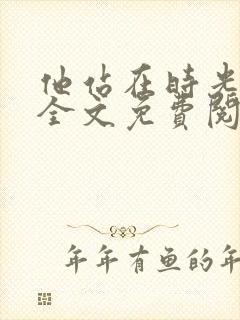 他站在时光
全文免費閱
年年有鱼的年